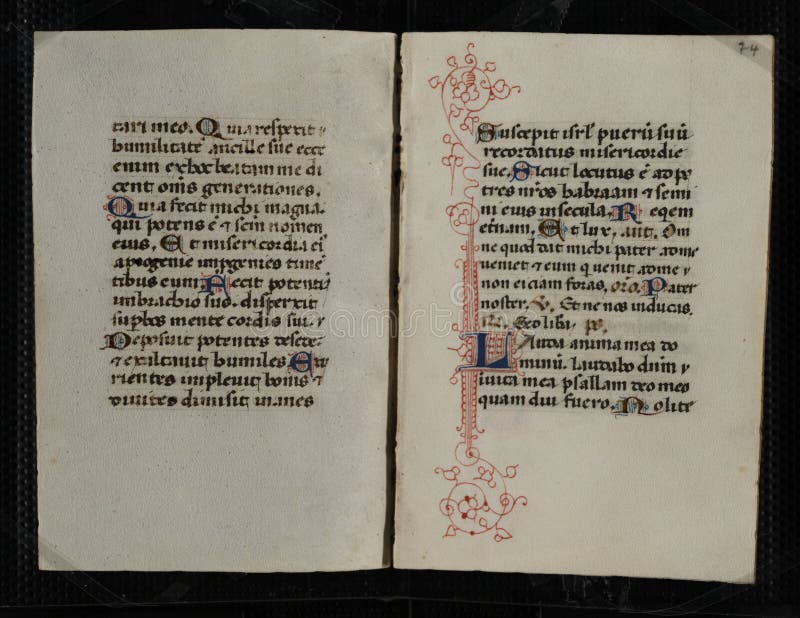 tari meo. Quia respexit
humilitatē ancille sue ecce
enim ex hoc beatam me di
cent om̄s generationes.
Quia fecit michi magna.
qui potens ē ⁊ sctm nomen
eius. Et misericordia ei᾽
a progenie in pgenies timē
tibus eum. Fecit potentiā
in brachio suo. disperxit
supbos mente cordis sui. ⁊
Deposuit potentes de sede.
⁊ exaltauit humiles. Esu
rientes impleuit bonis ⁊
diuites dimisit inanes
74
Suscepit isrl puerū suū
recordatus misericordie
sue. Sicut locutus ē ad pa
tres nr̄os habraam ⁊ semi
ni eius in secula. Reqem
et̄nam. Et lux. ant. Om
ne quod dat michi pater ad me
ueniet ⁊ eum q̄ uenit ad me
non eiciam foras. oro. Pater
noster. V. Et ne nos inducas.
Sed liba. ps.
Lauda anima mea do
minū. laudabo dnm
in uita mea psallam deo meo
quam diu fuero. Nolite